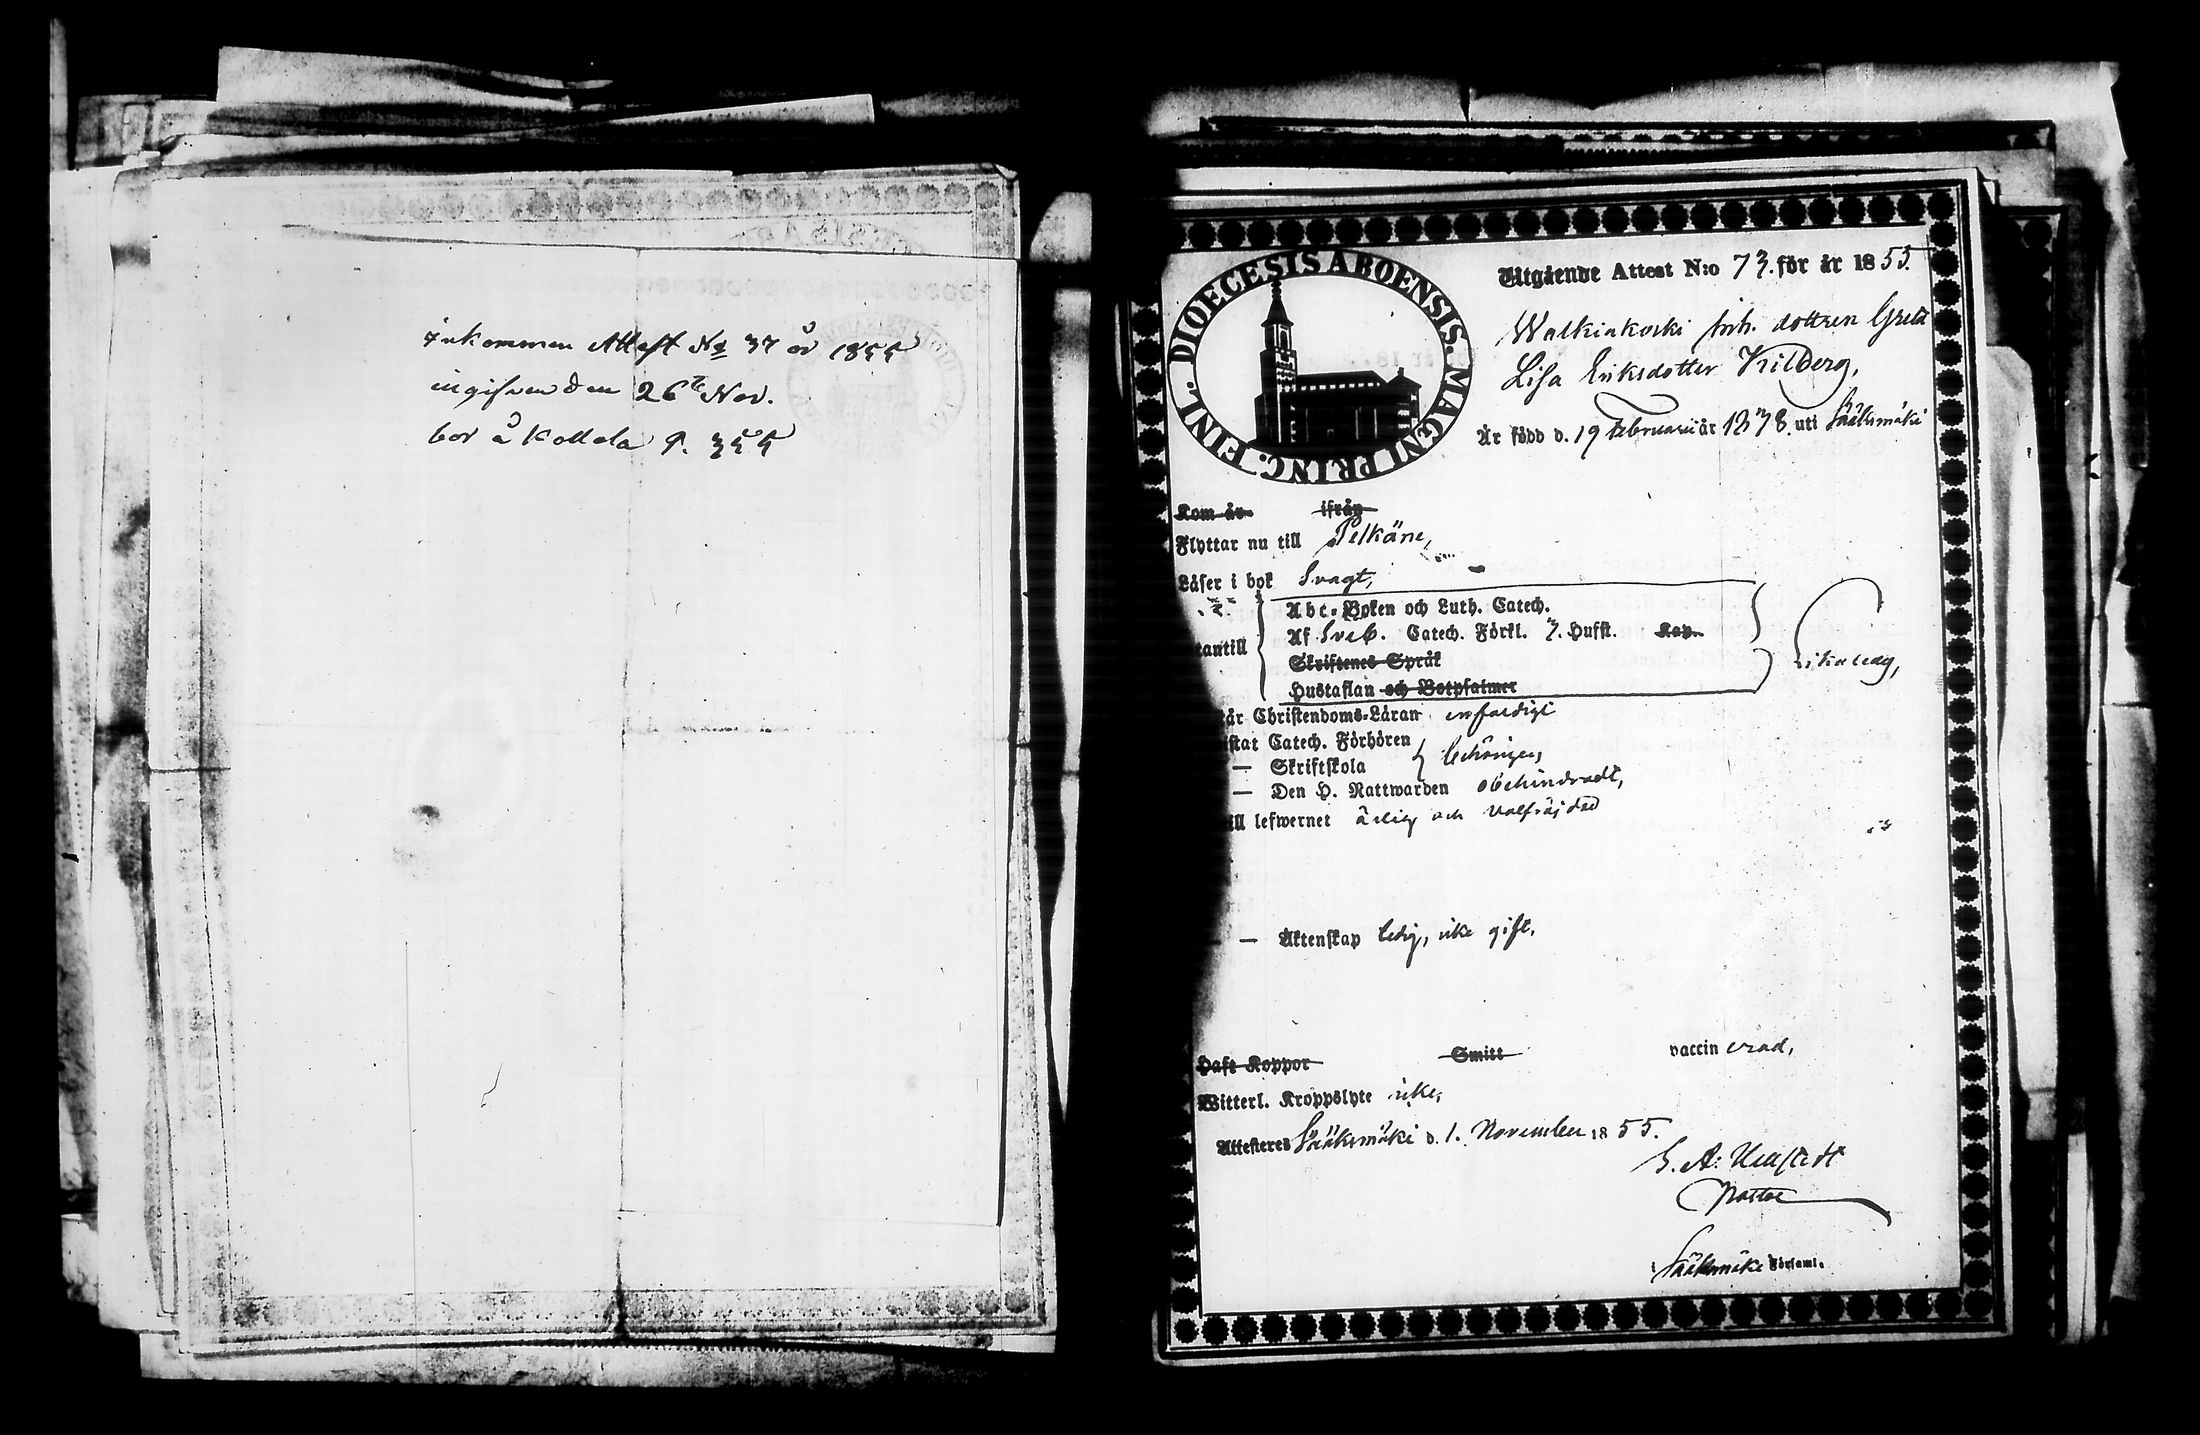 Inkommen Attest No 37 år 1855
ingifven den 26te Nov.
bor å Kollola p. 355
DIOECESIS ABOENSIS. MAGNI PRINC. FINL.
Utgående Attest N:o 73. för år 1855.
Walkiakoski inh. dottren Greta
Lisa Eriksdotter Kilberg,
Är född d. 19 Februari år 1838 uti Sääksmäki
Kom år ifrån
Flyttar nu till Pelkäne,
Läser i bok Svagt,
Abc-Boken och Luth. Catech.
tantill Af Sveb. Catech. Förkl. 7. Hufst. Kap.
Skriftenes Språk
Hustaflan och Botpsalmer
likaledes,
år Christendoms-Läran enfaldigt
istat Catech. Förhören
— Skriftskola behörigen,
— Den H. Nattwarden obehindradt,
ill lefwernet ärlig och välfräjdad
— Äktenskap ledig, icke gift,
Haft Koppor Smitt vaccinerad,
Witterl. Kroppslyte icke,
Attesteres Sääksmäki d. 1. November 1855.
Pastor
i Sääksmäki Församl.